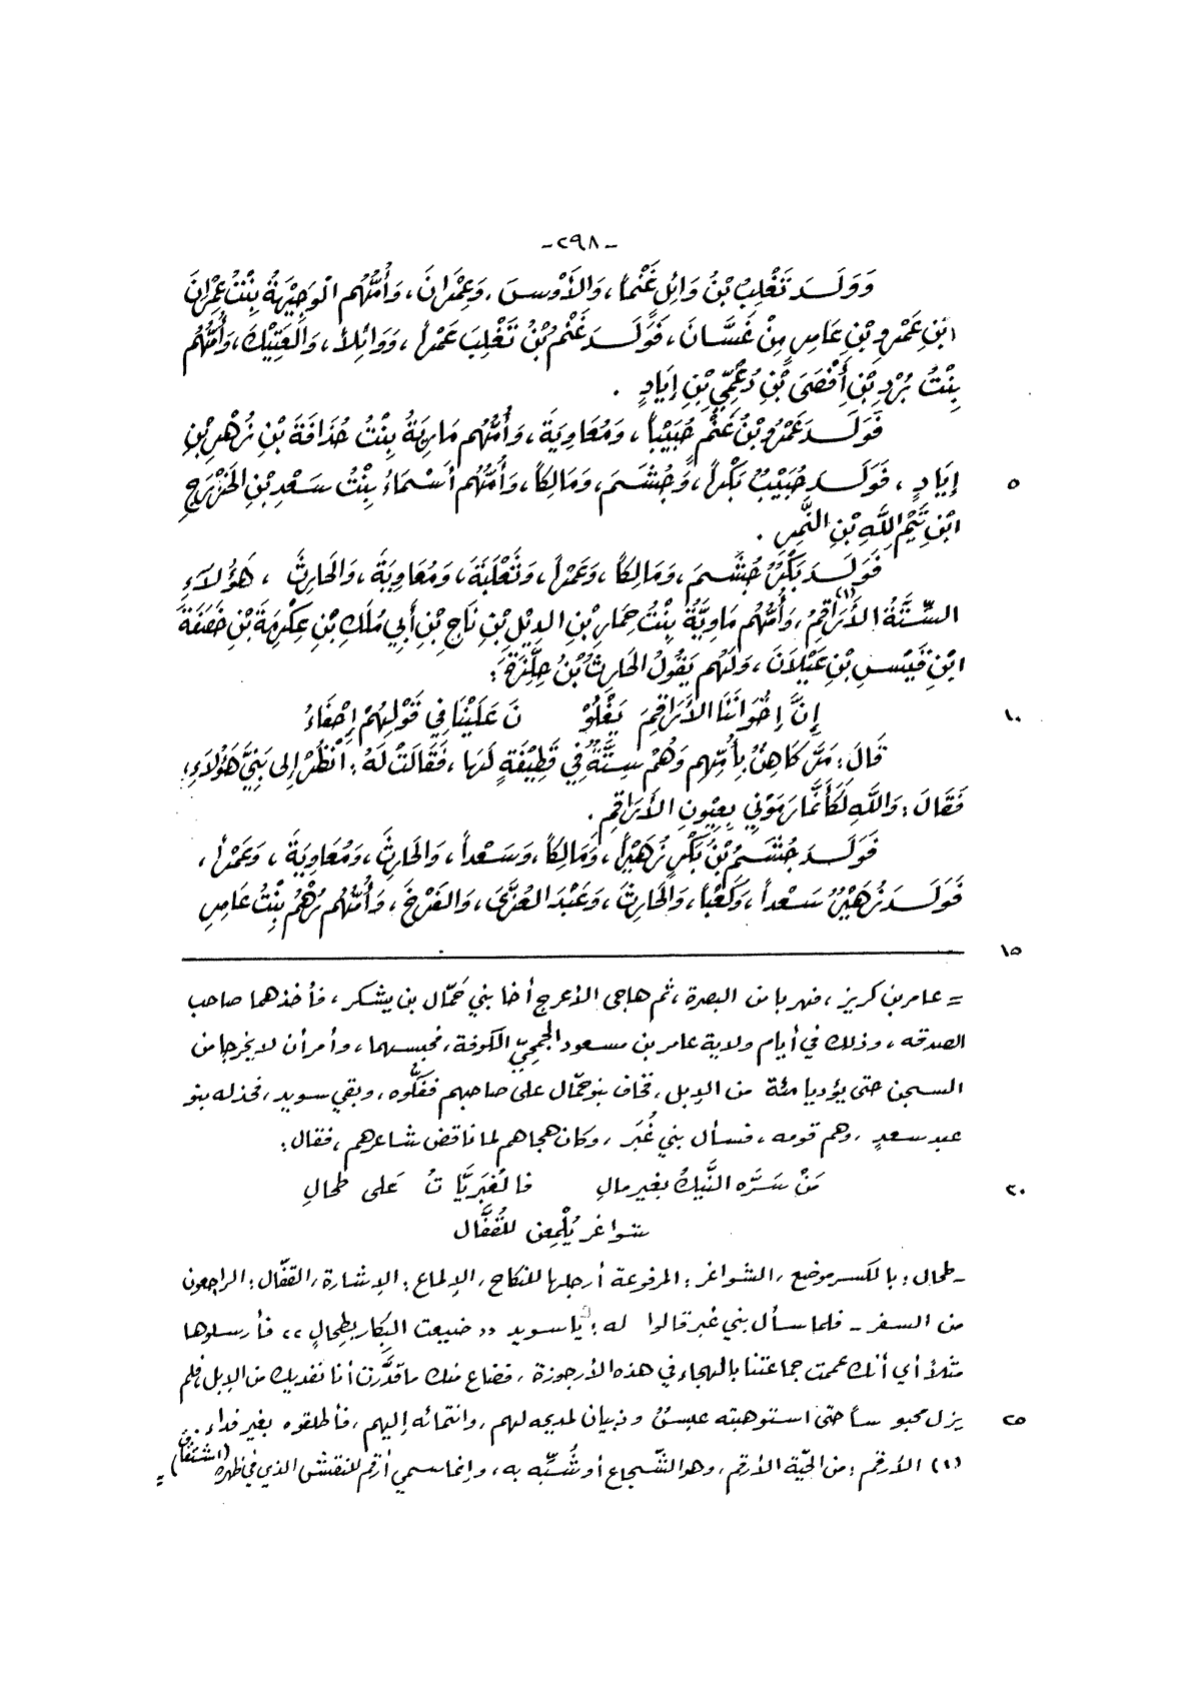 -٢٩٨-
وَوَلَـدَ تَغْلِبُ بْنُ وَائِلٍ غَنْماً، وَالأَوْسَ، وَعِمْرَانَ، وَأُمُّهُم الْوَجِيْهَةُ بِنْتُ عِمْرَانَ
ابْنِ عَمْرِو بْنِ عَامِرٍ مِنْ غَسَّانَ، فَوَلَـدَ غَنْمُ بْنُ تَغْلِبَ عَمْراً، وَوَائِلاً، وَالعَتِيْكَ، وَأُمُّهُم
بِنْتُ بُرْدِ بْنِ أَفْصَى بْنِ دُعْمِيِّ بْنِ إِيَادٍ .
فَوَلَـدَ عَمْرُو بْنُ غَنْمٍ حُبَيْباً، وَمُعَاوِيَةَ، وَأُمُّهُم مَارِيَةُ بِنْتُ حُذَافَةَ بْنِ زُهْرِ بْنِ
إِيَادٍ، فَوَلَـدَ حُبَيْبُ بَكْراً، وَجُشَـمَ، وَمَالِكاً، وَأُمُّهُم أَسْمَاءُ بِنْتُ سَـعْدِ بْنِ الخَزْرَجِ ٥
ابْنِ تَيْمِ اللَّهِ بْنِ النَّمِرِ .
فَوَلَـدَ بَكْرٌ جُشَـمَ، وَمَالِكاً، وَعَمْراً، وَثَعْلَبَةَ، وَمُعَاوِيَةَ، وَالحَارِثَ ، هَؤُلَاءِ
السِّتَّةُ الأَرَاقِمُ(١)، وَأُمُّهُم مَاوِيَّةُ بِنْتُ حِمَارِ بْنِ الدِيْلِ بْنِ نَاجِ بْنِ أَبِي مُلَكِ بْنِ عِكْرِمَةَ بْنِ خَصَفَةَ
ابْنِ قَيْسِ بْنِ عَيْلَانَ، وَلَهُم يَقُولُ الحَارِثُ بْنُ حِلِّزَةَ :
إِنَّ إِخْوَانَنَا الأَرَاقِمَ يَغْلُوْ نَ عَلَيْنَا فِي قَوْلِهُمْ إِحْفَاءُ ١٠
قَالَ: مَرَّ كَاهِنٌ بِأُمِّهِم وَهُمْ سِتَّةٌ فِي قَطِيْفَةٍ لَهَا، فَقَالَتْ لَهُ: انْظُرْ إِلى بَنِيَّ هَؤُلَاءِ،
فَقَالَ: وَاللَّهِ لَكَأَنَّمَا رَمَوْنِي بِعِيُونِ الأَرَاقِمِ.
فَوَلَـدَ جُشَـمُ بْنُ بَكْرٍ زُهَيْراً، وَمَالِكاً، وَسَـعْداً، وَالحَارِثَ، وَمُعَاوِيَةَ، وَعَمْراً،
فَوَلَـدَ زُهَيْرٌ سَـعْداً، وَكَعْباً، وَالحَارِثَ، وَعَبْدَ العُزَّى، وَالفَرْخَ، وَأُمُّهُم رُهْمُ بِنْتُ عَامِرِ
١٥
= عامر بن كريز، فهربا من البصرة، ثم هاجى الأعرج أخا بني حَمّال بن يشكر، فأخذهما صاحب
الصدقه، وذلك في أيام ولاية عامر بن مسعود الجُمحيّ الكوفة، فحبسهما، وأمر أن لا يخرجا من
السجن حتى يؤديا مئة من الإبل، فخاف بنو حمّال على صاحبهم ففكُّوه، وبقي سويد، فخذله بنو
عبد سعدٍ، وهم قومه، فسأل بني غُبَر، وكان هجاهم لما ناقض شاعرهم، فقال:
مَنْ سَـرَّه النَّيكُ بغير مالِ فالغُبَرِيَّاتُ عَلى طحالِ ٢٠
شواغر يُلْمِعن للقُفَّال
-طحال: بالكسر موضع، الشواغر: المرفوعة أرجلها للنكاح، الإلماع: الإشارة، القفّال: الراجعون
من السفر- فلما سأل بني غبر قالوا له: ياسويد ,, ضيعت البِكار بِطحالٍ ،، فأرسلوها
مثلاً أي أنك عممت جماعتنا بالهجاء في هذه الأرجوزة، فضاع منك ما قدَّرت أنا نفديك من الإبل، فلم
يزل محبوساً حتى استوهبته عبسٌ وذبيان لمديحه لهم، وانتمائه إليهم، فأطلقوه بغير فداء. ٢٥
(١) الأرقم: من الحيّة الأرقم، وهو الشّجاع أو شُبِّه به، وإنما سمي أرقم للنقش الذي في ظهره (اشتقاق) =